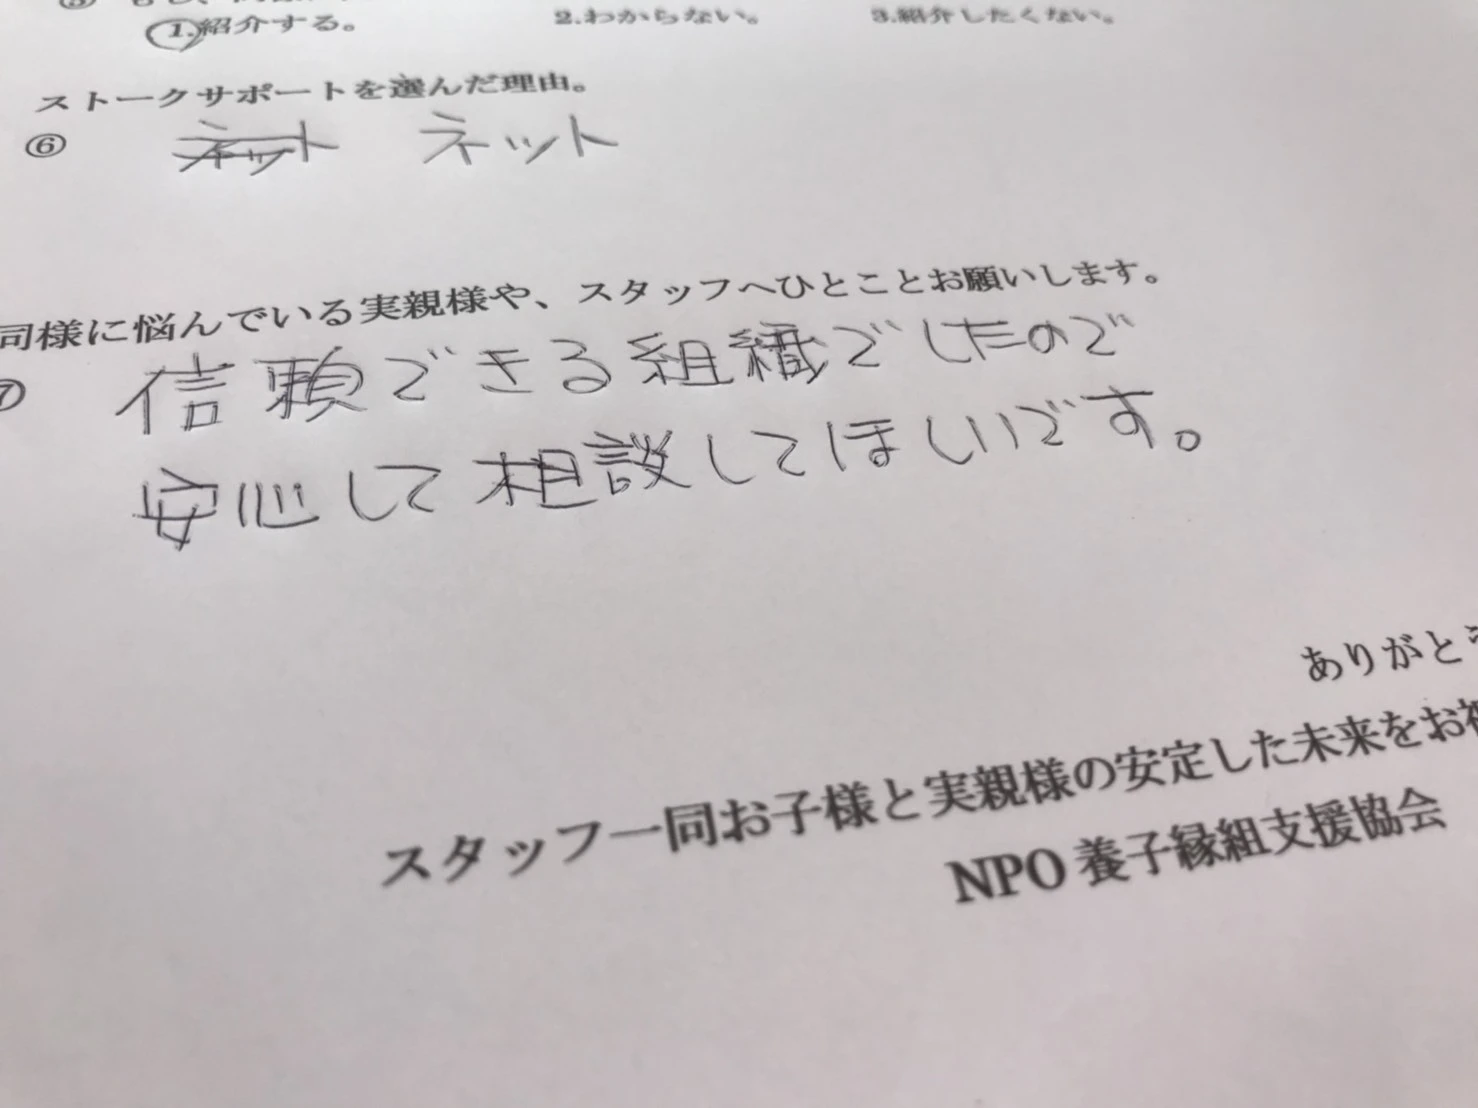 ①.紹介する。 2.わからない。 3.紹介したくない。
ストークサポートを選んだ理由。
⑥ ネット ネット
同様に悩んでいる実親様や、スタッフへひとことお願いします。
信頼できる組織でしたので
安心して相談してほしいです。
ありがと
スタッフ一同お子様と実親様の安定した未来をお祈
NPO 養子縁組支援協会